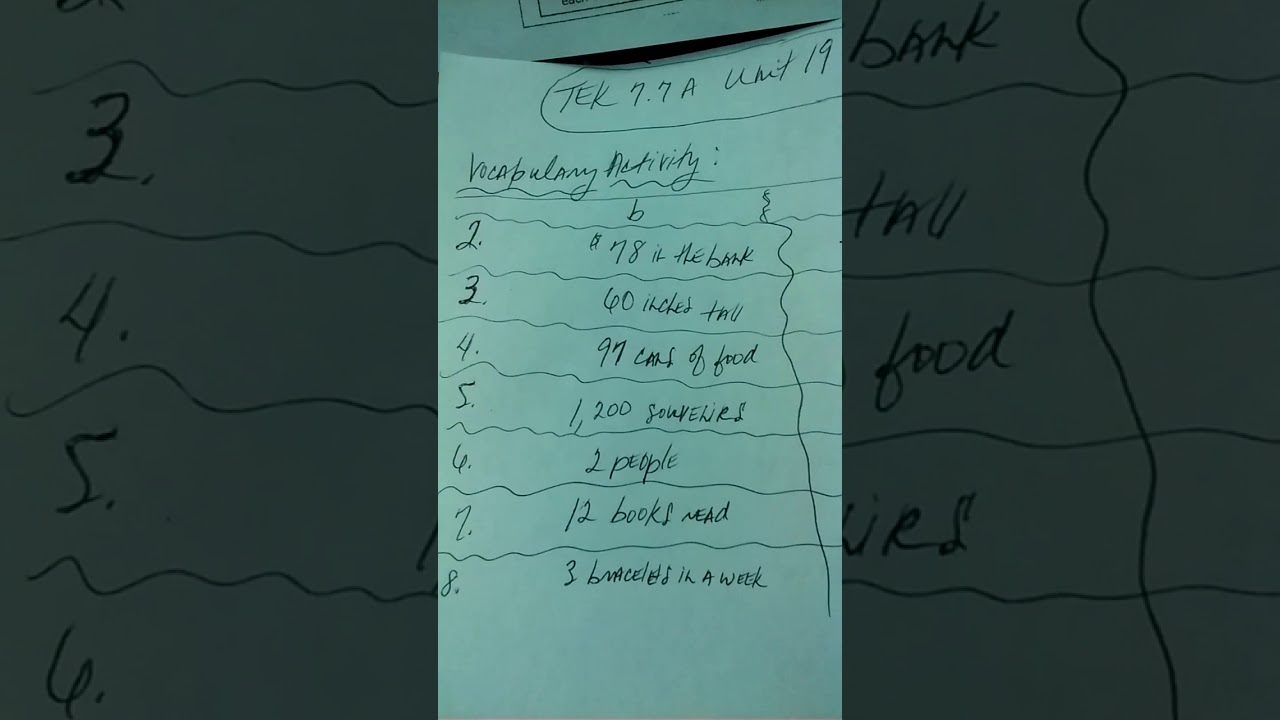 TEK 7.7A Unit 19
Vocabulary Activity:
b
2. $78 in the bank
3. 60 inches tall
4. 97 cans of food
5. 1,200 souvenirs
6. 2 people
7. 12 books read
8. 3 bracelets in a week